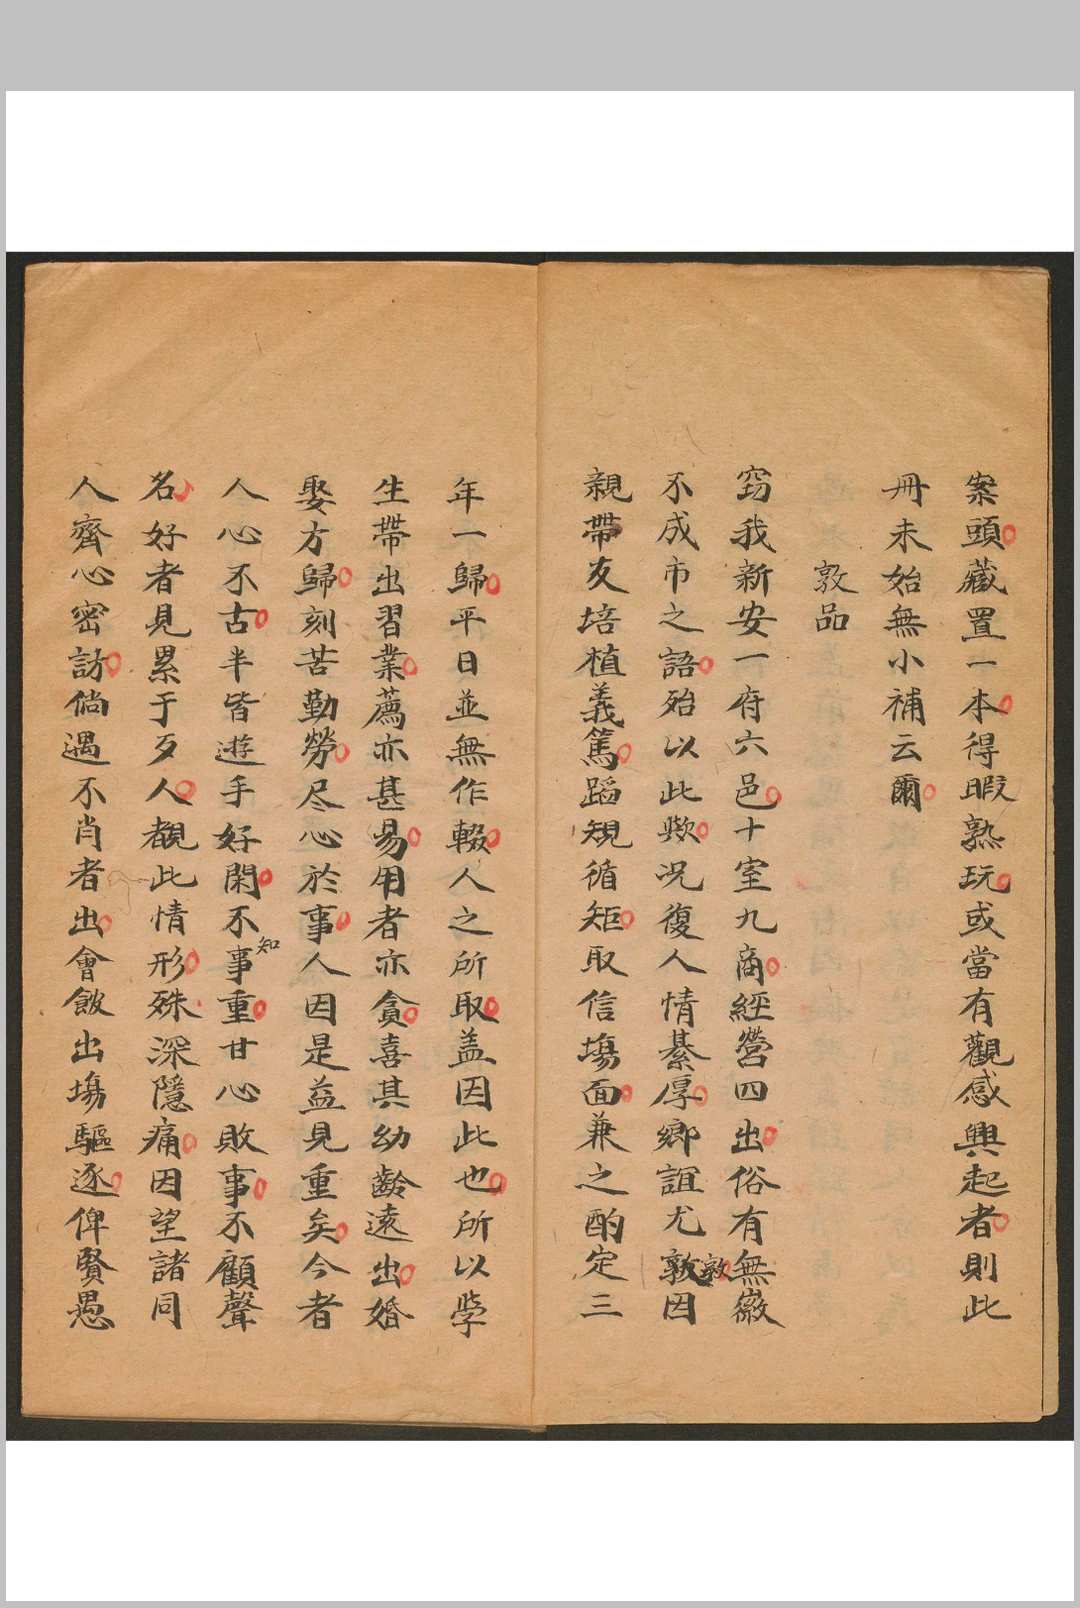 案頭藏置一本得暇熟玩或當有觀感興起者則此
冊未始無小補云爾
敦品
竊我新安一府六邑十室九商經營四出俗有無徽
不成市之語殆以此歟况復人情綦厚鄉誼尤敦因
敦
親帶友培植義篤蹈規循矩取信塲面兼之酌定三
年一歸平日並無作輟人之所取盖因此也所以學
生帶出習業薦亦甚易用者亦貪喜其幼齡遠出婚
娶方歸刻苦勤勞尽心於事人因是益見重矣今者
人心不古半皆遊手好閑不事重甘心敗事不顧聲
知
名好者見累于歹人覩此情形殊深隱痛因望諸同
人齊心密訪倘遇不肖者出會皷出塲驅逐俾賢愚